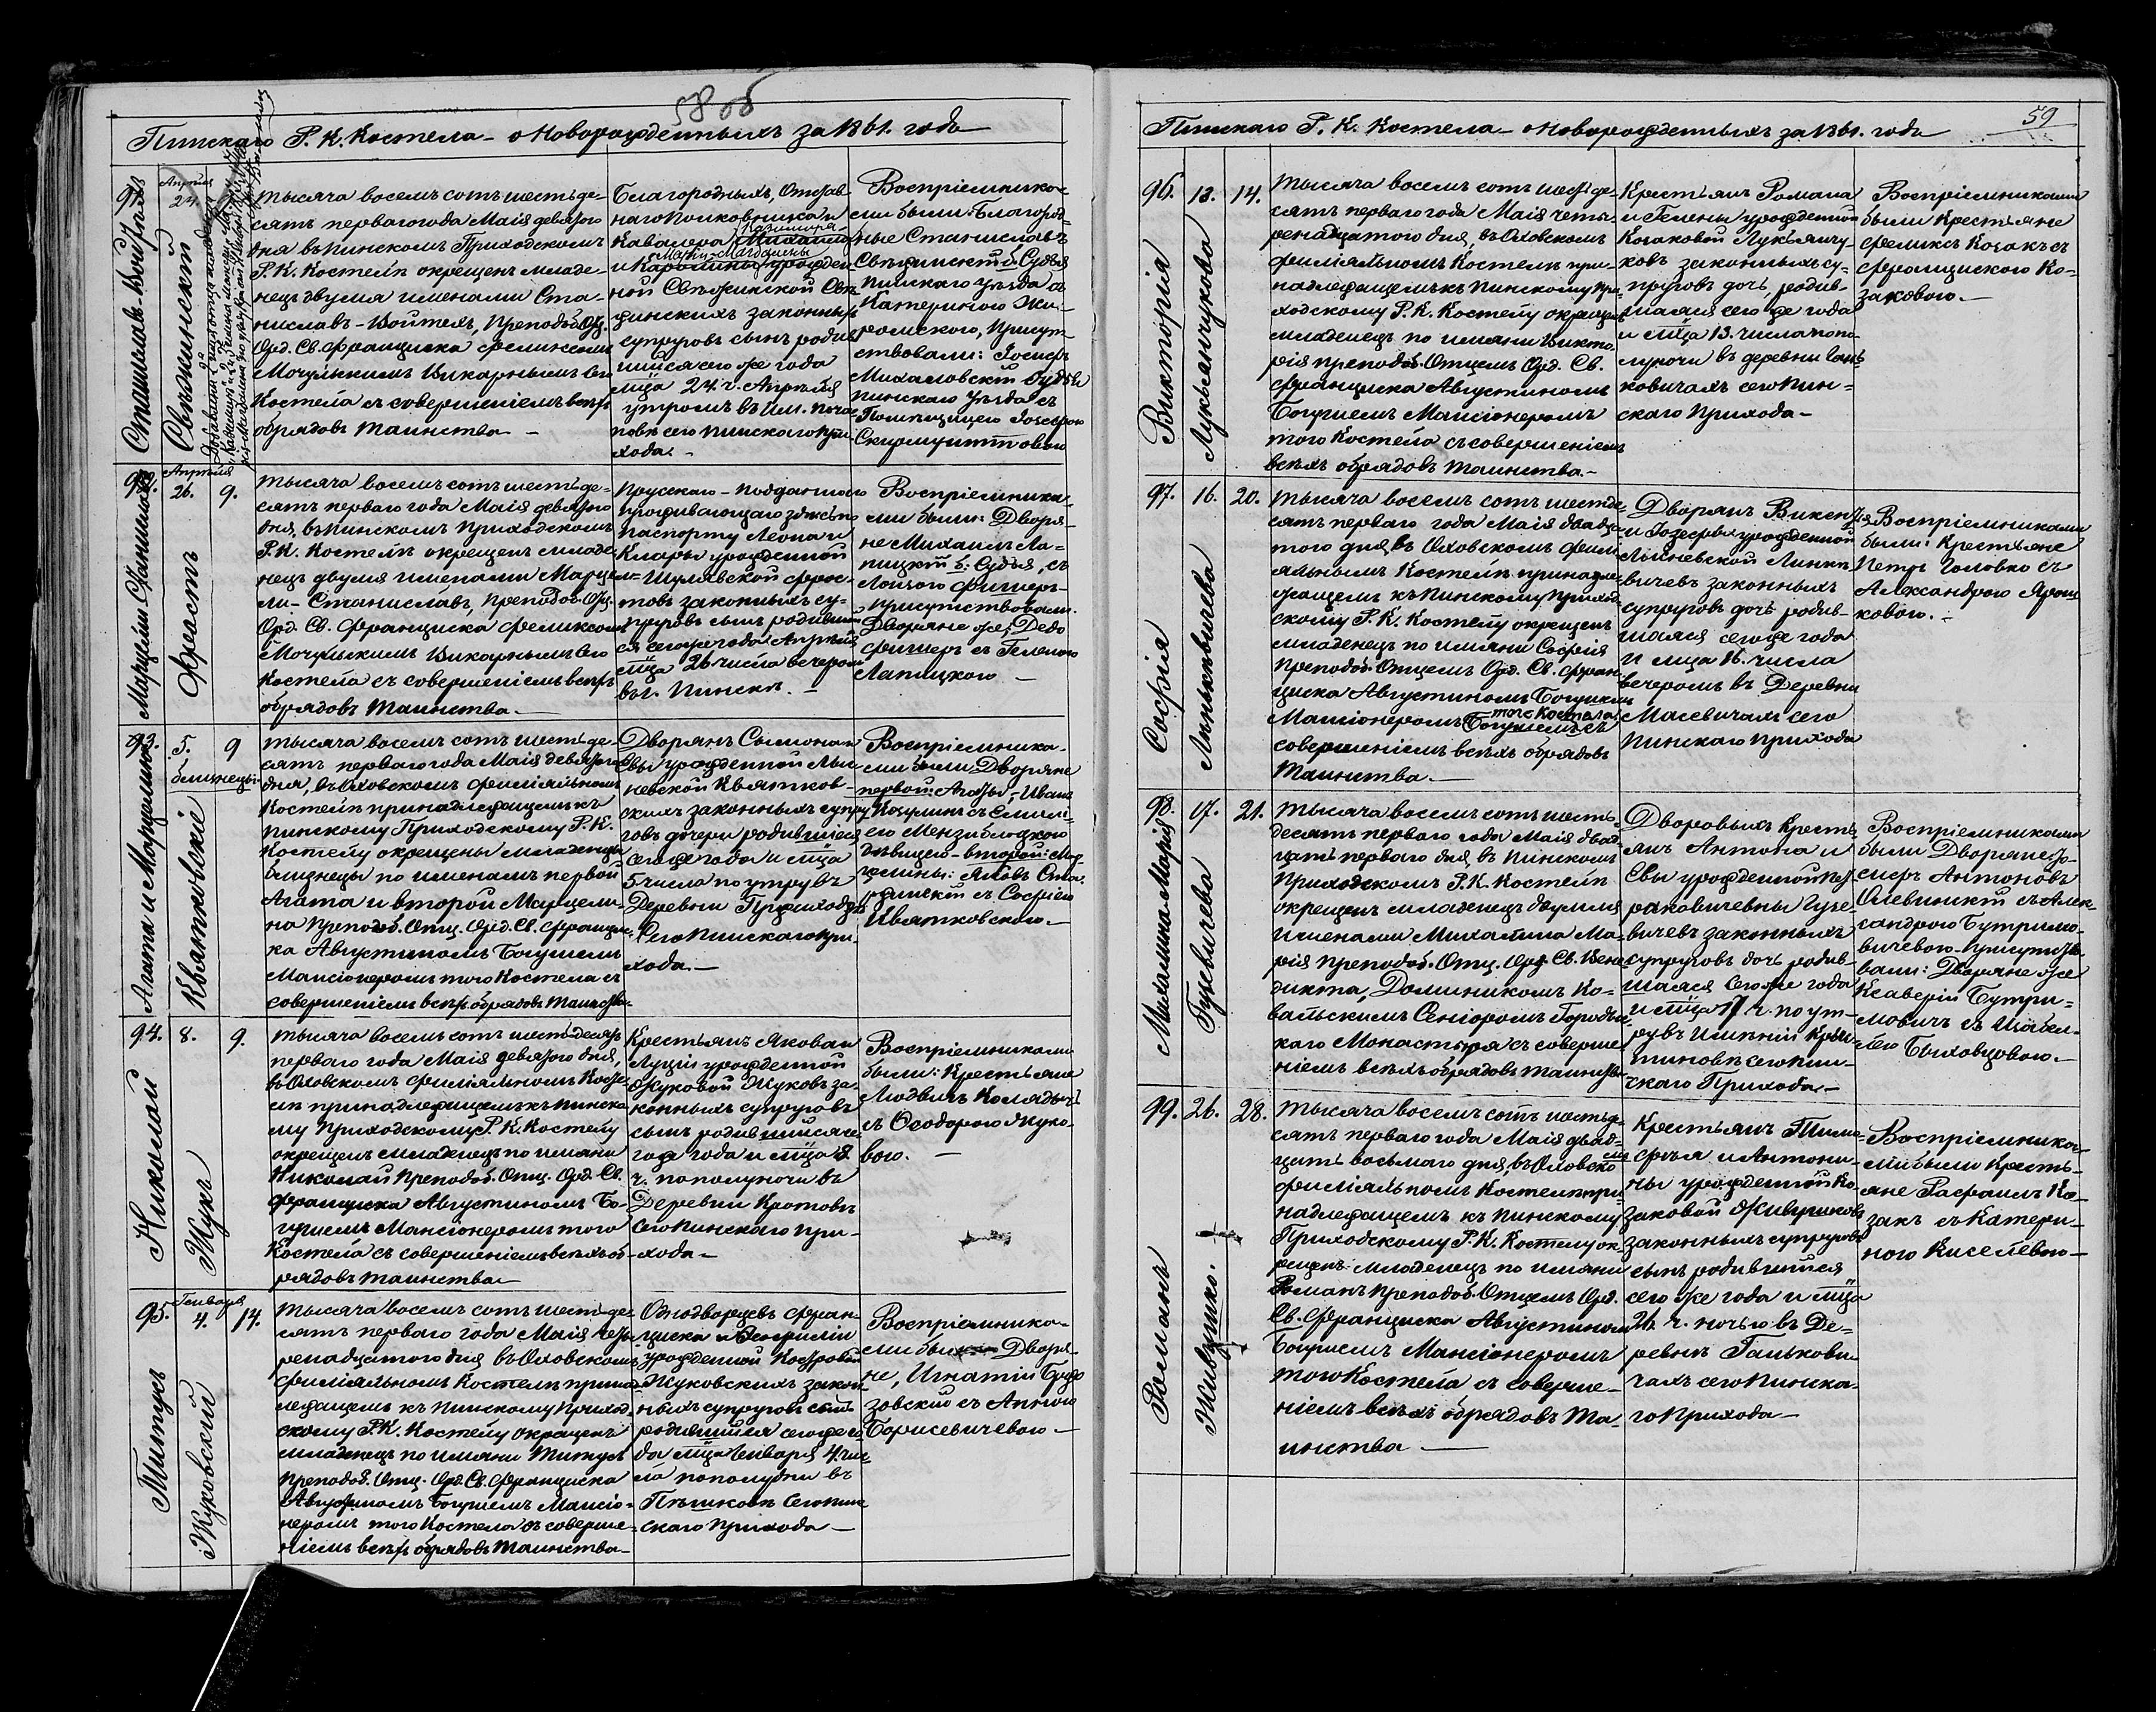 58 об
Пинскаго Р. К. Костела – о Новорожденныхъ за 1861. годъ
91.
Апрѣля
24.
Станиславъ-Войтѣхъ
Свѣжинскій
Тысяча восемь сотъ шестьде-
сятъ перваго года Маія девятого
дня въ Пинскомъ Приходскомъ
Р. К. Костелѣ окрещенъ младе-
нецъ двумя именами Ста-
ниславъ-Войтехъ, Преподоб. Отц.
Орд. Св. Франциска Феликсомъ
Мочульскимъ Викарнымъ сего
Костела съ совершеніемъ всѣхъ
обрядовъ таинства –
Благородныхъ, Отстав-
наго Полковника и
Казимира
Кавалера Михаила
Маріи-Магдалены
и Каролины урожден
ной Свѣжинской Свѣ-
жинскихъ законныхъ
супруговъ сынъ родив
шійся сего же года
мца 24 ч. Апрѣля
утромъ въ Им.
сего Пинскаго При-
хода. –
Воспріемника-
ми были: Благород-
ные Станиславъ
Свѣжинскій Судья
Пинскаго Уѣзда съ
Катериною
Присут
ствовали: Іосифъ
Михаловскій Судья
Пинскаго Уѣзда съ
Помѣщицею Іозефою
Скирмунттовою
92.
Апрѣля
26. 9.
Марцелли Станиславъ
Фрастъ
Тысяча восемь сотъ шестьде-
сятъ перваго года Маія девятого
дня, въ Пинскомъ Приходскомъ
Р. К. Костелѣ окрещенъ младе-
нецъ двумя именами Марцел-
ли-Станиславъ, Преподоб. Отц.
Орд. Св. Франциска Феликсомъ
Мочульскимъ Викарнымъ сего
Костела съ совершеніемъ всѣхъ
обрядовъ таинства. –
Прусскаго-подданного
проживающаго здѣсь по
паспорту Леона и
Клары урожденной
Шулявской Фрос-
товъ законныхъ су-
пруговъ сынъ родившій
ся сего же года Апрѣля
мца 26 числа вечеромъ
въ г. Пинскѣ. –
Воспріемника-
ми были: Дворя-
не Михаилъ Ла-
пицкій б. Судья, съ
Фишеръ-
Присутствовали.
Дворяне же,
Фишеръ съ Геленою
Лапицкою –
93.
5. 9
близнецы
Агата и Марцелина
Квятковскіе
Тысяча восемь сотъ шестьде-
сятъ перваго года Маія девятого
дня, въ Оховскомъ Филіяльномъ
Костелѣ принадлежащемъ къ
Пинскому Приходскому Р. К.
Костелу окрещены младенцы
близнецы по именамъ первой
Агата и второй Марцели-
на Преподоб. Отц. Орд. Св. Францис
ка Августиномъ Богушемъ
Мансіонеромъ того Костела съ
совершеніемъ всѣхъ обрядовъ таинства.
Дворянъ Сымона и
Евы урожденной
невской Квятков-
скихъ законныхъ супру
говъ дочери родившіеся
сего же года и мца
5 числа по утру въ
Деревни
Сего Пинскаго При-
хода. –
Воспріемника-
ми были Дворяне
первой: Агаты, – Иванъ
съ Емилі-
ею
дѣвицею – второй: Мар
целины: Яковъ
съ Софіею
Квятковскою. –
94. 8. 9.
Николай
Жукъ
Тысяча восемь сотъ шестьдесятъ
перваго года Маія девятого дня,
въ Оховскомъ Филіяльномъ Косте
лѣ принадлежащемъ къ Пинско
му Приходскому Р. К. Костелу
окрещенъ младенецъ по имяни
Николай Преподоб. Отц. Орд. Св.
Франциска Августиномъ Бо-
гушемъ Мансіонеромъ того
Костела съ совершеніемъ всѣхъ об-
рядовъ таинства –
Крестьянъ Якова и
Луціи урожденной
Жуковой Жуковъ за-
конныхъ супруговъ
сынъ родившійся се-
го же года и мца 8
ч. пополуночи въ
Деревни Кротовѣ
Сего Пинскаго При-
хода –
Воспріемниками
были: Крестьяне
Людвигъ Колядычъ
съ Ѳеодорою Жуко-
вою. –
95.
Генваря
4. 14.
Титусъ
Жуковскій
Тысяча восемь сотъ шестьде-
сятъ перваго года Маія четы
ренадцатого дня въ Оховскомъ
Филіяльномъ Костелѣ принад-
лежащемъ къ Пинскому Приход
скому Р. К. Костелу окрещенъ
младенецъ по имяни Титусъ
Преподоб. Отц. Орд. Св. Франциска
Августиномъ Богушемъ Мансіо-
неромъ того Костела съ соверше-
ніемъ всѣхъ обрядовъ таинства –
Однодворцевъ Фран-
циска и
урожденной
Жуковскихъ закон-
ныхъ супруговъ сынъ
родившійся сего же го
да мца Генваря 4 чис-
ла пополудни въ
Пѣшковѣ Сего Пин
скаго Прихода –
Воспріемника-
ми были Дворя-
не, Игнатій
зовскій съ Анною
Борисевичевою –
59
Пинскаго Р. К. Костела – о Новорожденныхъ за 1861. годъ
96. 13. 14.
Викторія
Лукьянчукова
Тысяча восемь сотъ шестьде-
сятъ перваго года Маія четы-
ренадцатого дня, въ Оховскомъ
Филіяльномъ Костелѣ при-
надлежащемъ къ Пинскому При-
ходскому Р. К. Костелу окрещенъ
младенецъ по имяни Викто-
рія Преподоб. Отцемъ Орд. Св.
Франциска Августиномъ
Богушемъ Мансіонеромъ
того Костела съ совершеніемъ
всѣхъ обрядовъ таинства. –
Крестьянъ Романа
и Гелены урожденной
Козаковой Лукьянчу-
ковъ законныхъ су-
пруговъ дочь, родив-
шаяся сего же года
и мца 13. числа попо
луночи въ деревни
ковичахъ сего Пин-
скаго Прихода –
Воспріемниками
были Крестьяне
Феликсъ Козакъ съ
Францискою Ко-
заковою. –
97. 16. 20.
Софія
Линкѣвичева
Тысяча восемь сотъ шестьде
сятъ перваго года Маія двадца
того дня, въ Оховскомъ Фили
яльномъ Костелѣ принадле-
жащемъ къ Пинскому Приход-
скому Р. К. Костелу окрещенъ
младенецъ по имяни Софія
Преподоб. Отцемъ Орд. Св. Фран-
циска Августиномъ Богушемъ
того Костела
Мансіонеромъ Богушемъ съ
совершеніемъ всѣхъ обрядовъ
Таинства. –
Дворянъ Викентія
и Іозефы урожденной
Линкѣ-
вичевъ законныхъ
супруговъ дочь родив-
шаяся сего же года
и мца 16. числа
вечеромъ въ Деревни
Масевичахъ сего
Пинскаго Прихода
Воспріемниками
были: Крестьяне
Петръ Головко съ
Александрою
ковою. –
98. 17. 21.
Михалина Марія
Гузевичева
Тысяча восемь сотъ шесть-
десятъ перваго года Маія двад-
цать перваго дня, въ Пинскомъ
Приходскомъ Р. К. Костелѣ
окрещенъ младенецъ двумя
Именами Михалина Ма-
рія Преподоб. Отц. Орд. Св. Бене-
дикта, Доминикомъ Ко-
вальскимъ Сеніоромъ Городищ-
каго Монастыря съ соверше-
ніемъ всѣхъ обрядовъ таинства
Дворовыхъ Кресть-
янъ Антона и
Евы урожденной
раковичевны Гузе-
вичевъ законныхъ
супруговъ дочь родив-
шаяся Сего же года
и мца 17 ч. по ут-
ру въ Имѣніи
тиновѣ сего Пин-
скаго Прихода. –
Воспріемниками
были Дворяне Іо-
сифъ Антоновъ
Олевинскій съ Алек-
сандрою Бутримо-
вичевою. Присутство-
вали: Дворяне же
Ксаверій Бутри-
мовичъ съ Изабел-
лею Быховцовою. –
99. 26. 28.
Романъ
Живушко.
Тысяча восемь сотъ шестьде-
сятъ перваго года Маія двад-
цать восьмаго дня, въ Оховско
мъ
Филіяльномъ Костелѣ при-
надлежащемъ къ Пинскому
Приходскому Р. К. Костелу ок-
рещенъ младенецъ по имяни
Романъ Преподоб. Отцемъ Орд.
Св. Франциска Августиномъ
Богушемъ Мансіонеромъ
того Костела съ соверше-
ніемъ всѣхъ обрядовъ Та-
инства –
Крестьянъ Тимо-
фѣя и Антони-
ны урожденной Ко-
заковой Живушковъ
законныхъ супруговъ
сынъ родившійся
сего же года и мца
26 ч. ночью въ Де-
ревнѣ Ганькови-
чахъ сего Пинска-
го Прихода –
Воспріемника-
ми были Кресть-
яне Рафаилъ Ко-
закъ съ Катери-
ною Киселевою –